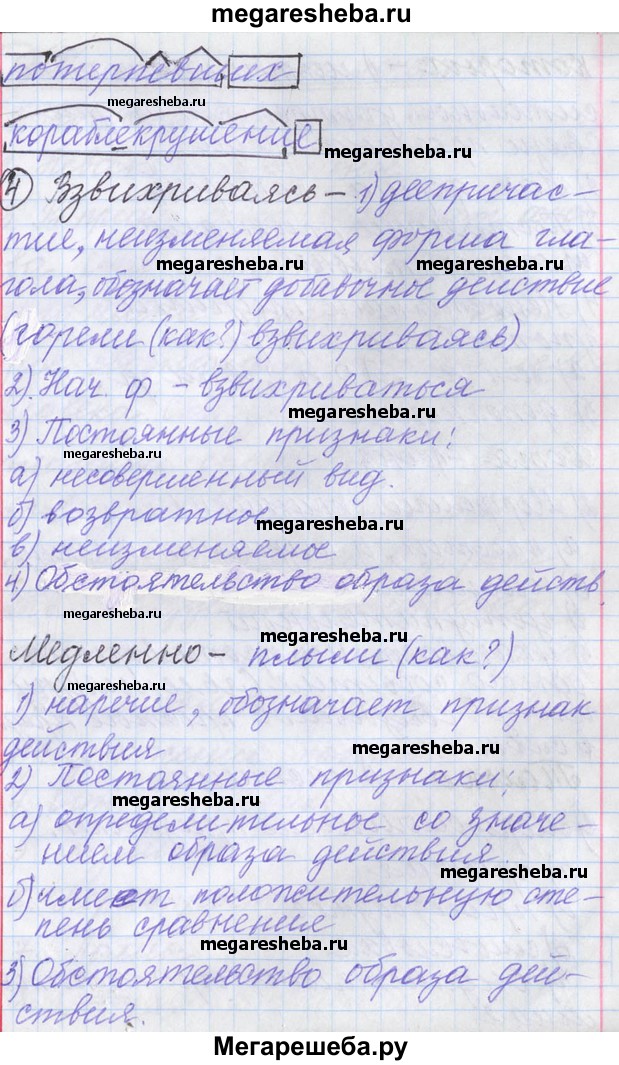 megaresheba.ru
потерпевших
megaresheba.ru
кораблекрушение
megaresheba.ru
4 Взвихриваясь – 1) деепричас-
тие, неизменяемая форма гла-
megaresheba.ru megaresheba.ru
гола, обозначает добавочное действие
(горели (как?) взвихриваясь)
2). Нач. ф – взвихриваться
megaresheba.ru
3) Постоянные признаки:
megaresheba.ru
а) несовершенный вид.
б) возвратное
megaresheba.ru
в) неизменяемое
4) Обстоятельство образа действ.
megaresheba.ru
megaresheba.ru
Медленно – плыли (как?)
megaresheba.ru
1) наречие, обозначает признак
действия
megaresheba.ru
2) Постоянные признаки:
megaresheba.ru
а) определительное со значе-
нием образа действия.
megaresheba.ru
б) имеет положительную сте-
пень сравнения
megaresheba.ru
3) Обстоятельство образа дей-
ствия.
Мегарешеба.ру